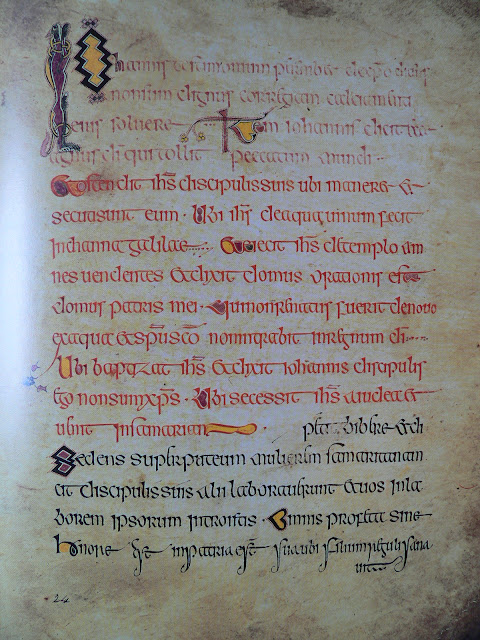 Iohannis testimonium perhibet de dicens
non sum dignus corrigiam calciamenti
eius soluere Item iohannis dicit ecce
agnus di qui tollit peccatum mundi
Ostendit ihs discipulis suis ubi maneret &
secuti sunt eum · Ubi ihs de aqua uinum fecit
in channa galileae Et eiecit ihs de templo om
nes uendentes & dixit domus orationis est
domus patris mei · Qui non renatus fuerit denuo
ex aqua & spu sco non intrabit in regnum di
Ubi baptizat ihs & dixit iohannis discipulis
ego non sum xps · Ubi secessit ihs a iudea &
in samarian bibere & di
Sedens super puteum mulierem samaritanam
cit discipulis suis alii laborauerunt & uos in la
borem ipsorum introistis · Omnis profeta sine
honore in patria est sua ubi filium reguli sana
uit
24